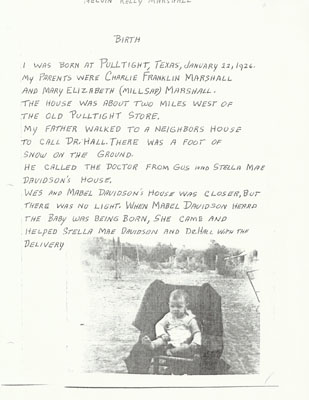 MELVIN KELLY MARSHALL
BIRTH
I WAS BORN AT PULLTIGHT, TEXAS, JANUARY 22, 1926.
MY PARENTS WERE CHARLIE FRANKLIN MARSHALL
AND MARY ELIZABETH (MILLSAP) MARSHALL.
THE HOUSE WAS ABOUT TWO MILES WEST OF
THE OLD PULLTIGHT STORE.
MY FATHER WALKED TO A NEIGHBORS HOUSE
TO CALL DR. HALL. THERE WAS A FOOT OF
SNOW ON THE GROUND.
HE CALLED THE DOCTOR FROM GUS AND STELLA MAE
DAVIDSON'S HOUSE.
WES AND MABEL DAVIDSON'S HOUSE WAS CLOSER, BUT
THERE WAS NO LIGHT. WHEN MABEL DAVIDSON HEARD
THE BABY WAS BEING BORN, SHE CAME AND
HELPED STELLA MAE DAVIDSON AND DR. HALL WITH THE
DELIVERY